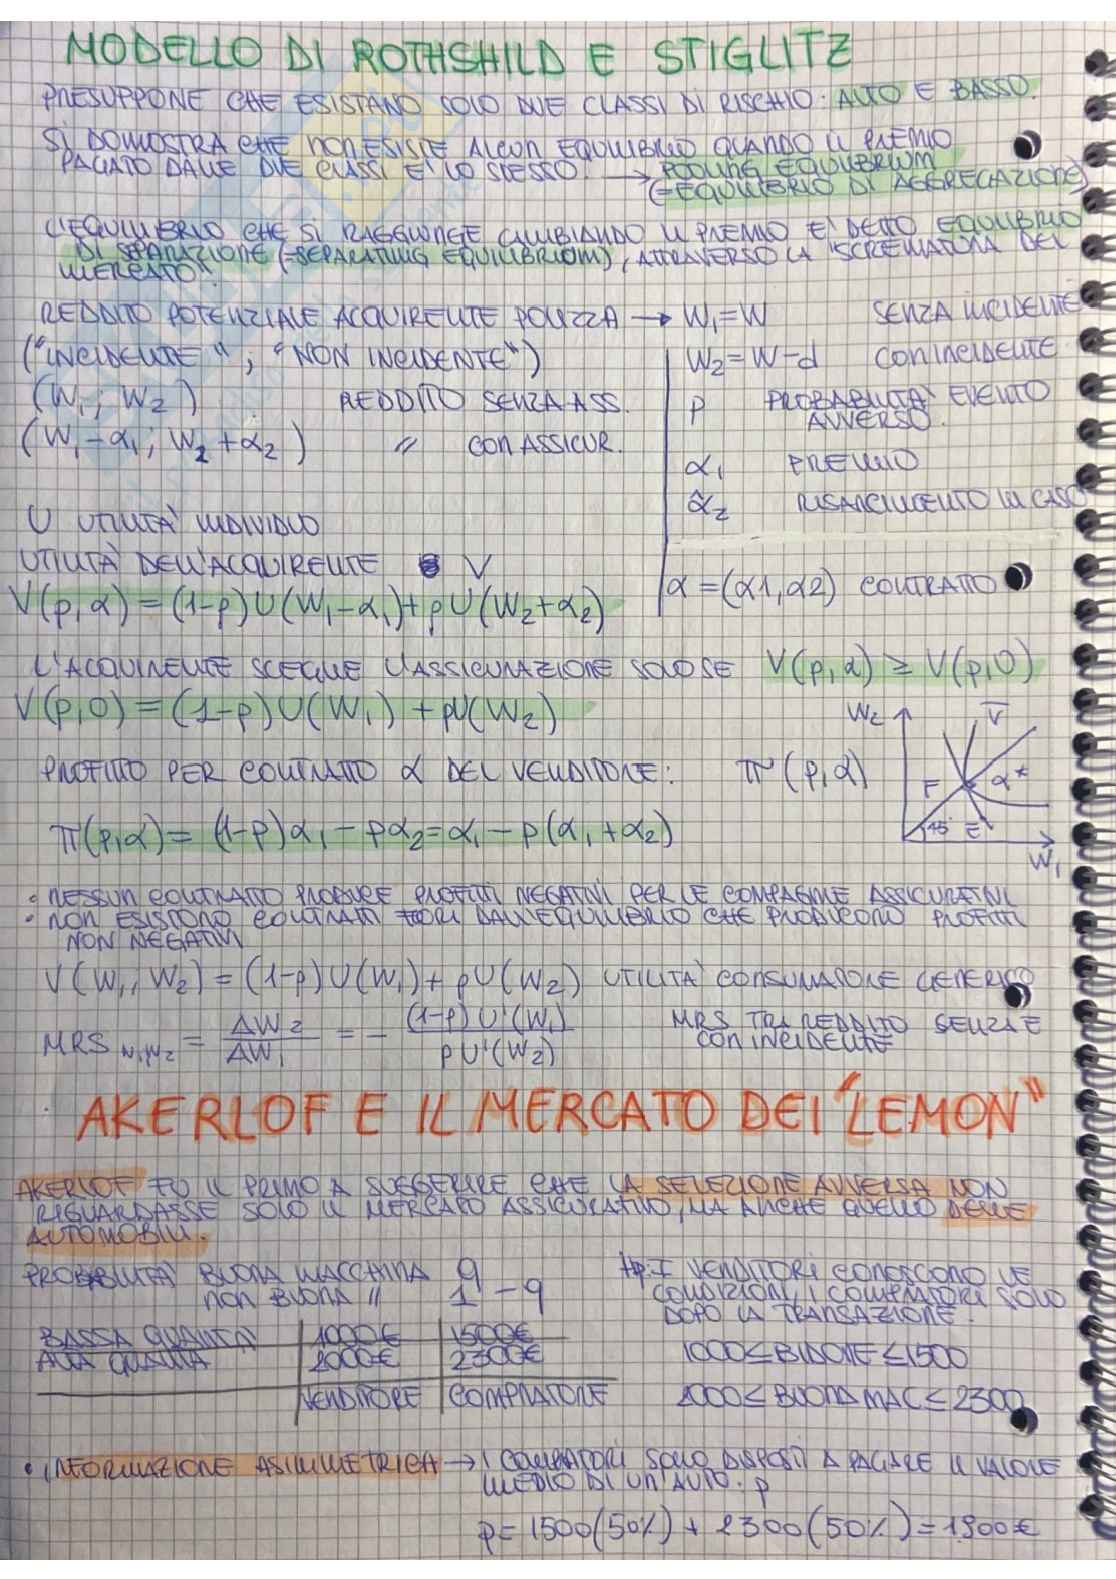 MODELLO DI ROTHSHILD E STIGLITZ
PRESUPPONE CHE ESISTANO SOLO DUE CLASSI DI RISCHIO: ALTO E BASSO.
SI DIMOSTRA CHE NON ESISTE ALCUN EQUILIBRIO QUANDO IL PREMIO
PAGATO DALLE DUE CLASSI E' LO STESSO. → POOLING EQUILIBRIUM
(=EQUILIBRIO DI AGGREGAZIONE)
L'EQUILIBRIO CHE SI RAGGIUNGE CAMBIANDO IL PREMIO E' DETTO EQUILIBRIO
DI SEPARAZIONE (=SEPARATING EQUILIBRIUM), ATTRAVERSO LA "SCREMATURA DEL
MERCATO".
REDDITO POTENZIALE ACQUIRENTE POLIZZA → W₁=W SENZA INCIDENTE
("INCIDENTE", "NON INCIDENTE") W₂=W-d CON INCIDENTE
(W₁; W₂) REDDITO SENZA ASS. p PROBABILITA' EVENTO
AVVERSO.
(W₁-α₁; W₂+α₂) // CON ASSICUR.
α₁ PREMIO
α̂₂ RISARCIMENTO IN CASO
U UTILITA' INDIVIDUO
UTILITA' DELL'ACQUIRENTE V
α=(α1,α2) CONTRATTO
V(p,α)=(1-p)U(W₁-α₁)+pU(W₂+α₂)
L'ACQUIRENTE SCEGLIE L'ASSICURAZIONE SOLO SE V(p,α) ≥ V(p,0)
V(p,0)=(1-p)U(W₁)+pU(W₂)
W₂ V̅
F α*
45° E
W₁
PROFITTO PER CONTRATTO α DEL VENDITORE: π(p,α)
π(p,α)=(1-p)α₁-pα₂=α₁-p(α₁+α₂)
• NESSUN CONTRATTO PRODUCE PROFITTI NEGATIVI PER LE COMPAGNIE ASSICURATIVE
• NON ESISTONO CONTRATTI FUORI DALL'EQUILIBRIO CHE PRODUCONO PROFITTI
NON NEGATIVI
V(W₁, W₂)=(1-p)U(W₁)+pU(W₂) UTILITA' CONSUMATORE GENERICO
MRS W₁W₂ = ΔW2/ΔW₁ = - (1-p)U'(W₁)/pU'(W₂) MRS TRA REDDITO SENZA E
CON INCIDENTE
AKERLOF E IL MERCATO DEI "LEMON"
AKERLOF FU IL PRIMO A SUGGERIRE CHE LA SELEZIONE AVVERSA NON
RIGUARDASSE SOLO IL MERCATO ASSICURATIVO, MA ANCHE QUELLO DELLE
AUTOMOBILI.
PROBABILITA' BUONA MACCHINA q
NON BUONA // 1-q
Hp: I VENDITORI CONOSCONO LE
CONDIZIONI, I COMPRATORI SOLO
DOPO LA TRANSAZIONE.
BASSA QUALITA' 1000€ 1500€
ALTA QUALITA' 2000€ 2300€
VENDITORE COMPRATORE
1000≤BIDONE≤1500
2000≤BUONA MAC≤2300
• INFORMAZIONE ASIMMETRICA → I COMPRATORI SONO DISPOSTI A PAGARE IL VALORE
MEDIO DI UN'AUTO. p
p= 1500(50%) + 2300(50%)=1900€